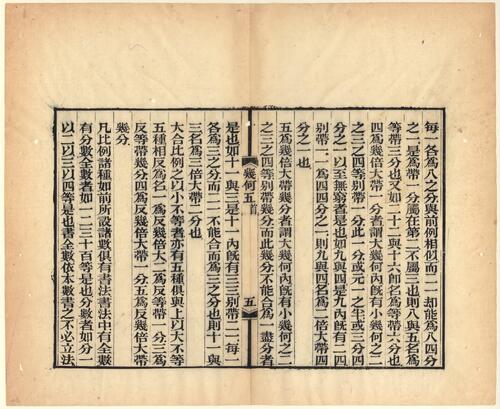 每一各爲八之分與前例相似而二一却能爲八四分
之一是爲帶一分屬在第二不屬三也則八與五名爲
等帶三分也又如二十二與十六卽名爲等帶六分也
四爲幾倍大帶一分者謂大幾何內旣有小幾何之二
之三之四等別帶一分此一分或元一之半或三分四
分之一以至無窮者是也如九與四是九內旣有二四
別帶一一爲四四分之一則九與四名爲二倍大帶四
分之一也
五爲幾倍大帶幾分者謂大幾何內旣有小幾何之二
之三之四等別帶幾分而此幾分不能合爲一盡分者
幾何五首
五
是也如十一與三是十一內旣有三三別帶二一每一
各爲三之分而二一不能合而爲三之分也則十一與
三名爲三倍大帶二分也
大合比例之以小不等者亦有五種俱與上以大不等
五種相反爲名一爲反幾倍大二爲反等帶一分三爲
反等帶幾分四爲反幾倍大帶一分五爲反幾倍大帶
幾分
凡比例諸種如前所設諸數俱有書法書法中有全數
有分數全數者如一二三十百等是也分數者如分一
以二以三以四等是也書全數依本數書之不必立法